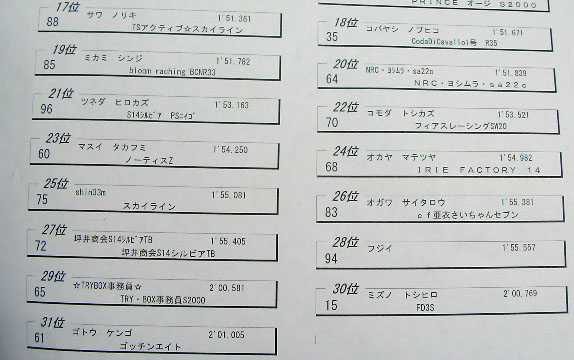 17位
88 サワ ノリキ 1'51.361
TSアクティブ☆スカイライン
19位
85 ミカミ シンジ 1'51.782
bloom raching BCNR33
21位
96 ツネダ ヒロカズ 1'53.163
S14ｼﾙﾋﾞｱ PSﾆｲｺﾞ
23位
60 マスイ タカフミ 1'54.250
ノーティスZ
25位
75 shin33m 1'55.081
スカイライン
27位
72 坪井商会S14ｼﾙﾋﾞｱTB 1'55.405
坪井商会S14シルビアTB
29位
65 ☆TRYBOX事務員☆ 2'00.581
TRY・BOX事務員S2000
31位
61 ゴトウ ケンゴ 2'01.005
ゴッチンエイト
PRINCE オージ S2000
18位
35 コバヤシ ノブヒコ 1'51.671
CodaDiCavallo1号 R35
20位
64 NRC・ヨシムラ・sa22c 1'51.839
NRC・ヨシムラ・sa22c
22位
70 コモダ トシカズ 1'53.521
フィアスレーシングSW20
24位
68 オカヤ マテツヤ 1'54.982
IRIE FACTORY 14
26位
83 オガワ サイタロウ 1'55.381
cf亜衣さいちゃんセブン
28位
94 フジイ 1'55.557
30位
15 ミズノ トシヒロ 2'00.769
FD3S